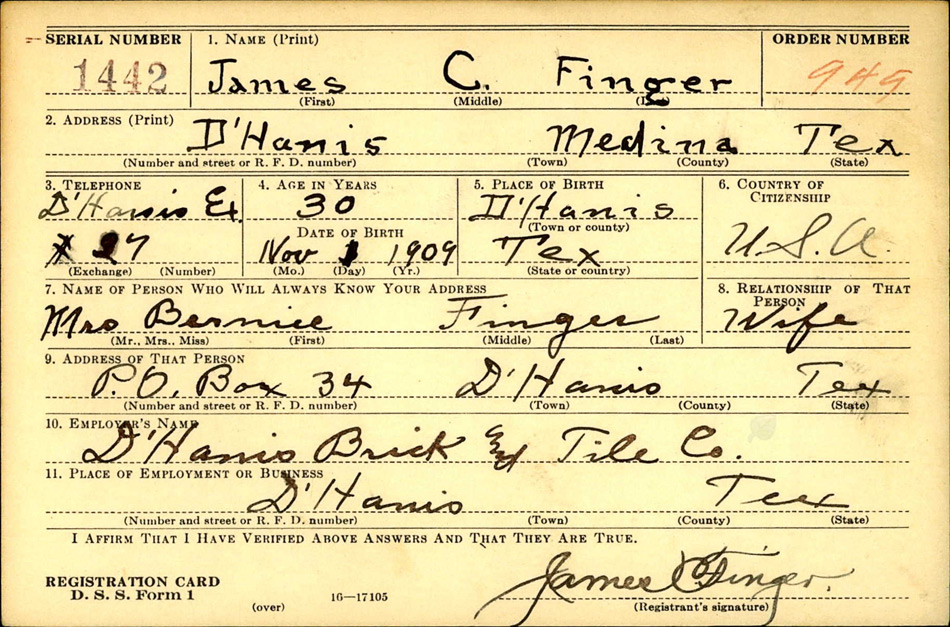 SERIAL NUMBER 1. NAME (Print) ORDER NUMBER
1442 James C. Finger 949
(First) (Middle) (Last)
2. ADDRESS (Print)
D'Hanis Medina Tex
(Number and street or R. F. D. number) (Town) (County) (State)
3. TELEPHONE 4. AGE IN YEARS 5. PLACE OF BIRTH 6. COUNTRY OF CITIZENSHIP
D'Hanis Ex. 30 D'Hanis
DATE OF BIRTH (Town or county)
27 Nov 1 1909 Tex U.S.A.
(Exchange) (Number) (Mo.) (Day) (Yr.) (State or country)
7. NAME OF PERSON WHO WILL ALWAYS KNOW YOUR ADDRESS 8. RELATIONSHIP OF THAT PERSON
Mrs Bernice Finger Wife
(Mr., Mrs., Miss) (First) (Middle) (Last)
9. ADDRESS OF THAT PERSON
P.O. Box 34 D'Hanis Tex
(Number and street or R. F. D. number) (Town) (County) (State)
10. EMPLOYER'S NAME
D'Hanis Brick and Tile Co.
11. PLACE OF EMPLOYMENT OR BUSINESS
D'Hanis Tex
(Number and street or R. F. D. number) (Town) (County) (State)
I AFFIRM THAT I HAVE VERIFIED ABOVE ANSWERS AND THAT THEY ARE TRUE.
REGISTRATION CARD James C Finger.
D. S. S. Form 1 (over) 16—17105 (Registrant's signature)